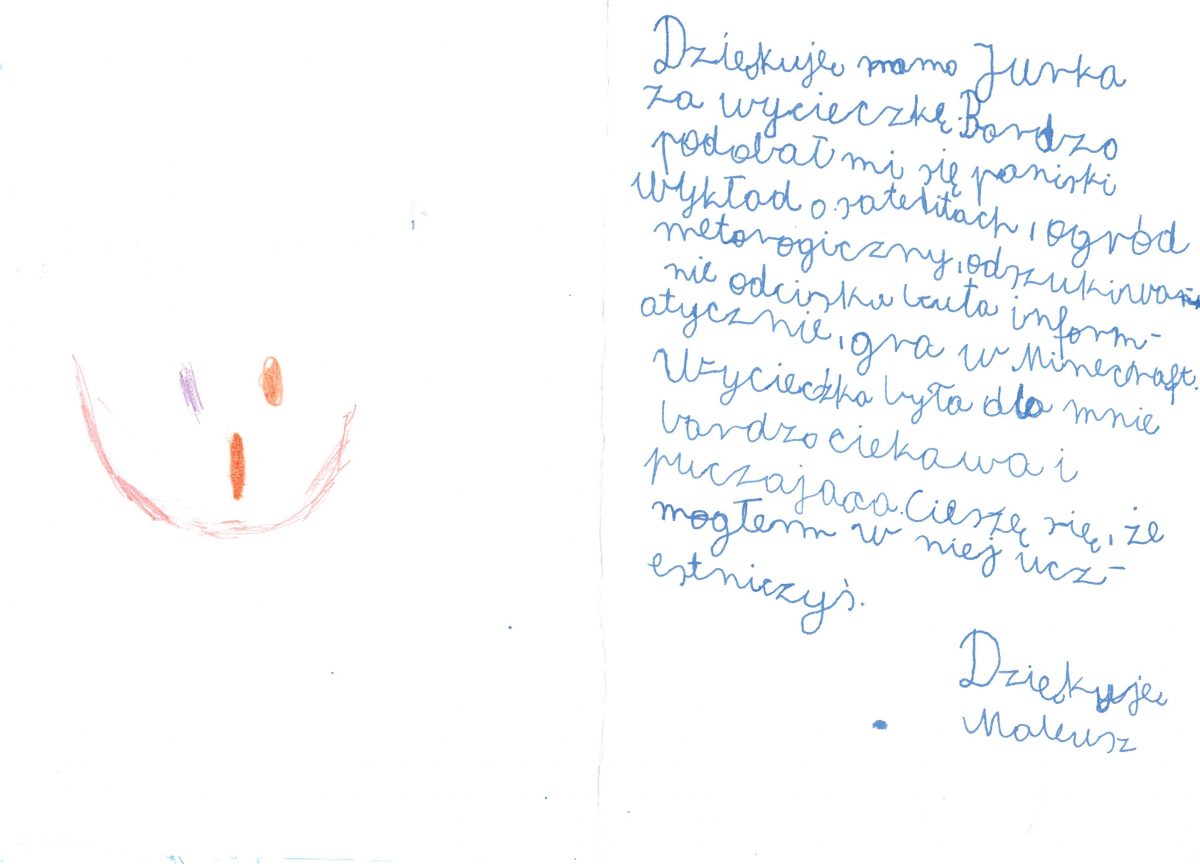 Dziękuję mamo Jurka
za wycieczkę. Bardzo
podobał mi się paniski
wykład o satelitach, ogród
metorogiczny, odszukiwa
nie odcisku buta inform-
atycznie, gra w Minecraft.
Wycieczka była dla mnie
bardzo ciekawa i
puczająca. Cieszę się, że
mogłem w niej ucz-
estniczyś.
Dziękuję
Mateusz